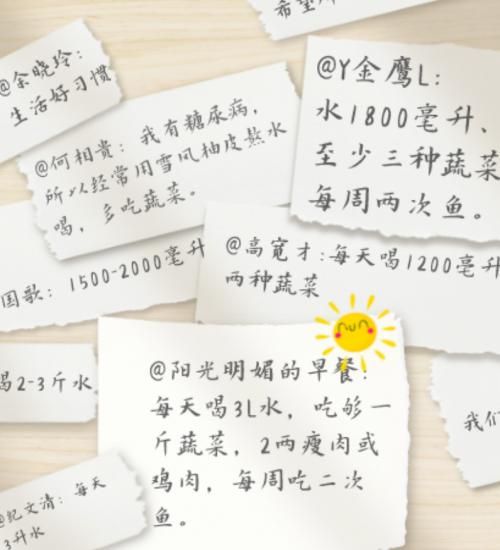 希望
@余晓玲:
生活好习惯
@何相贵: 我有糖尿病,
所以经常用雪风柚皮熬水
喝, 多吃蔬菜。
@Y金鹰L:
水1800毫升、
至少三种蔬菜
每周两次鱼。
国歌: 1500-2000毫升
@高宽才:每天喝1200毫升
两种蔬菜
喝2-3斤水
@阳光明媚的早餐:
每天喝3L水, 吃够一
斤蔬菜, 2两瘦肉或
鸡肉, 每周吃二次
鱼。
我们
@纪文清: 每天
3升水